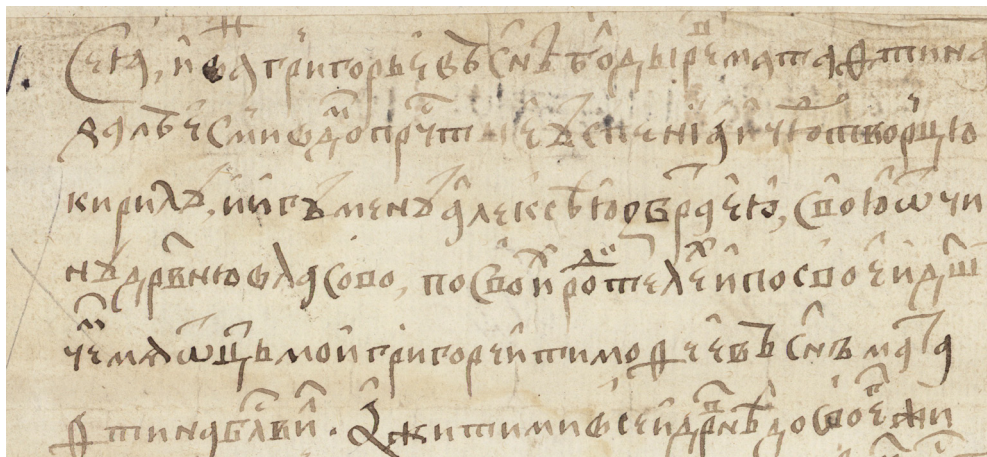 Се яз, иван григорьевъ снъ бодырева матафтина
дал есми в дом пречтые успениа и чюдотворцю
кирилу, и игумену алексѣю з братею, свою отчи
ну дрвню власово, по своих родителех и по своеи дши
чем мя отцъ мои григореи тимофеевъ снъ мата
фтина блвил. А жити ми в сеи дрвнѣ до своеи жи